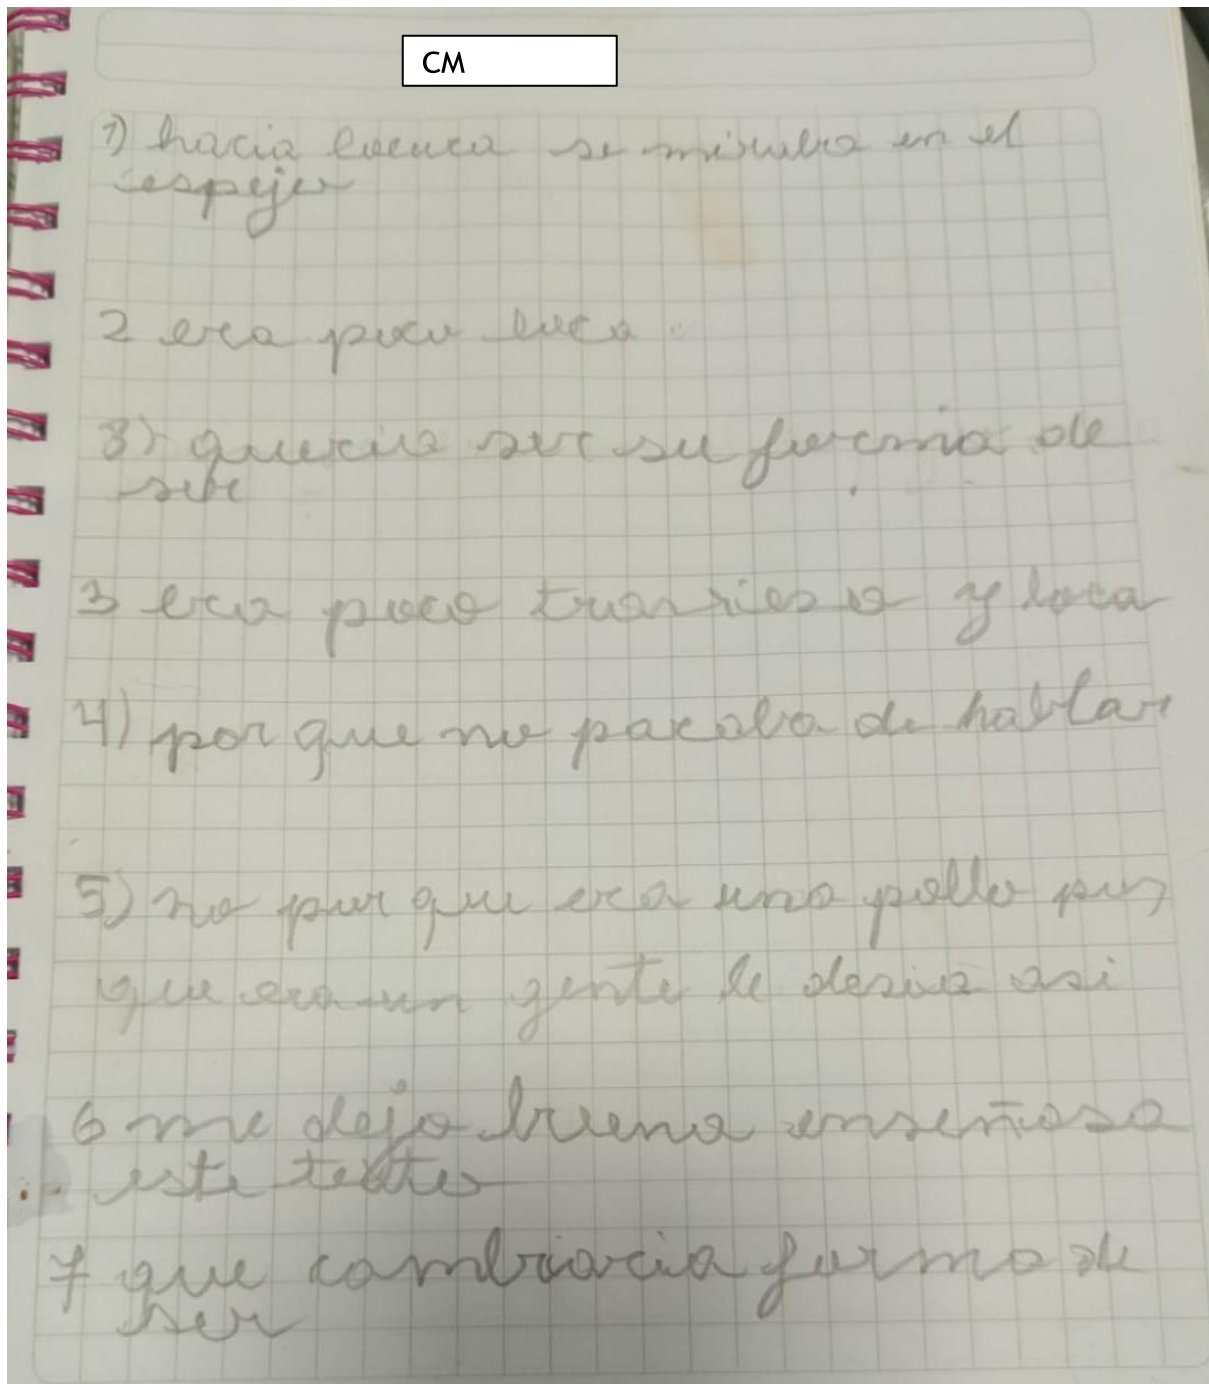 CM
1) hacia locuca se miraba en el
espejo
2 era poco loca
3) queria ser su forma de
ser
3 era poco traviesa y loca
4) por que no paraba de hablar
5) no por que era una pollo
que era un gente le desia asi
6 me dejo buena enseñasa
este texto
7 que cambiaria forma de
ser